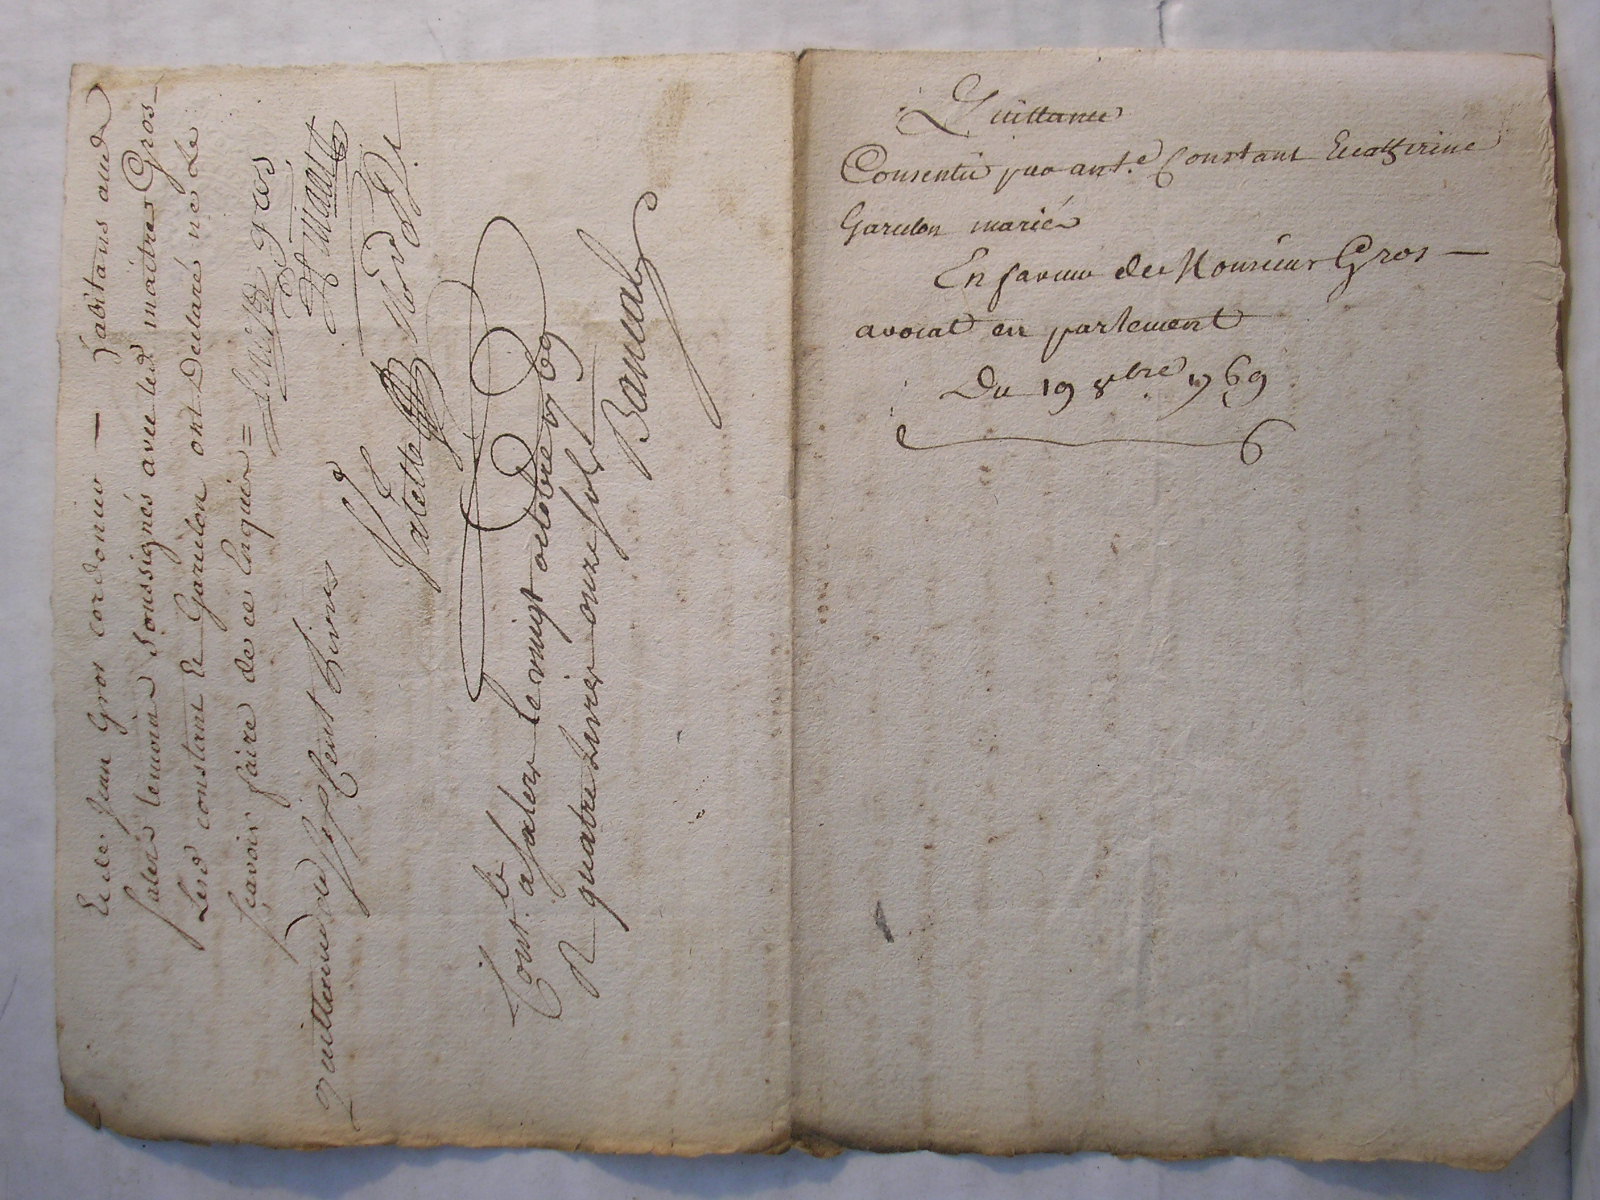 Et de Jean Gros cordonier — habitans aud
salers temoins soussignés avec led maitre Gros
Lesd constant et Garulon ont Declaré ne le
scavoir faire de ce Enquis =
gros
quittance de sept cent livres
Valette
Cont. a salers le vingt octobre 1769
R quatre livres onze sols
Bancal
Quittance
Consentie par ant.e Constant Et catherine
Garulon mariés
En faveur de Monsieur Gros —
avocat en parlement
Du 19 8bre 1769